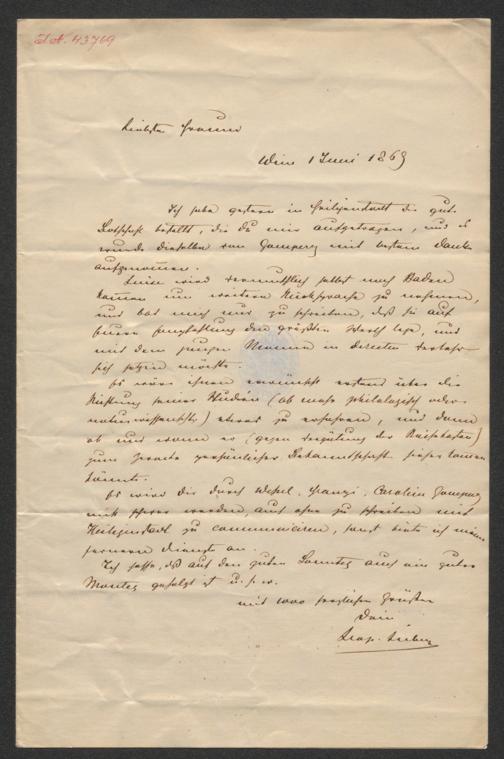 I.N. 43769
Liebster Franz
Wien 1 Juni 1869
Ich habe gestern in Heiligenstadt die gute
Botschaft bestellt, die du mir aufgetragen, und es
wurde dieselbe von Gomperz mit bestem Danke
aufgenommen.
wird vermuthlich selbst nach Baden
kommen um weitere Rücksprache zu nehmen,
und bat mich nur zu schreiben, daß sie auf
Empfehlung den größten Werth lege, und
mit dem jungen Manne in directen Verkehr
sich setzen möchte.
Es wäre ihnen erwünscht erstens über die
Richtung seiner Studien (ob mehr philologisch oder
naturwissenschftl) etwas zu erfahren, und dann
ob und wann er (gegen Vergütung der Reisekosten)
zum Zwecke persönlicher Bekanntschaft hieher kommen
könnte.
Es wird dir durch Franzi, Caroline Gomperz
nicht schwer werden, auch ohne zu schreiben mit
Heiligenstadt zu communiciren, sonst biete ich meine
ferneren Dienste an.
Ich hoffe, daß auf den guten Sonntag auch ein guter
Montag gefolgt ist u.s.w.
mit 1000 herzlichen Grüßen
Dein
Leop. Lieben